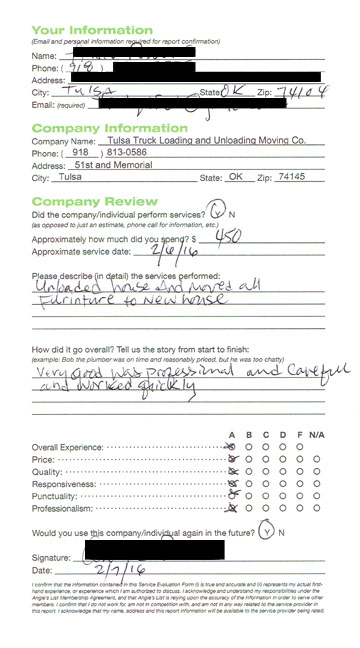 Your Information
(Email and personal information required for report confirmation)
Name:
Phone: ( 918 )
Address:
City: TulSA State: OK Zip: 74104
Email: (required)
Company Information
Company Name: Tulsa Truck Loading and Unloading Moving Co.
Phone: ( 918 ) 813-0586
Address: 51st and Memorial
City: Tulsa State: OK Zip: 74145
Company Review
Did the company/individual perform services? Y N
(as opposed to just an estimate, phone call for information, etc.)
Approximately how much did you spend? $ 450
Approximate service date: 2/6/16
Please describe (in detail) the services performed:
Unloaded house And moved all
Furinture to New house
How did it go overall? Tell us the story from start to finish:
(example: Bob the plumber was on time and reasonably priced, but he was too chatty)
Very good was professional and Careful
and worked quickly
A B C D F N/A
Overall Experience:
Price:
Quality:
Responsiveness:
Punctuality:
Professionalism:
Would you use this company/individual again in the future? Y N
Signature:
Date: 2/7/16
I confirm that the information contained in this Service Evaluation Form (i) is true and accurate and (ii) represents my actual first-
hand experience, or experience which I am authorized to discuss. I acknowledge and understand my responsibilities under the
Angie's List Membership Agreement, and that Angie's List is relying upon the accuracy of the information in order to serve other
members. I confirm that I do not work for, am not in competition with, and am not in any way related to the service provider in
this report. I acknowledge that my name, address and this report information will be available to the service provider being rated.